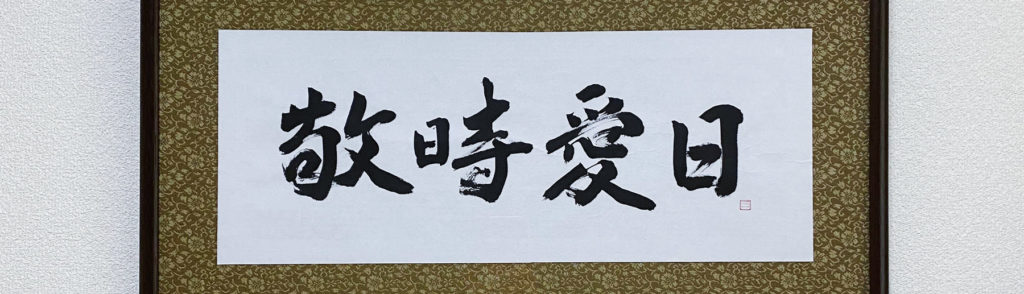 敬時愛日